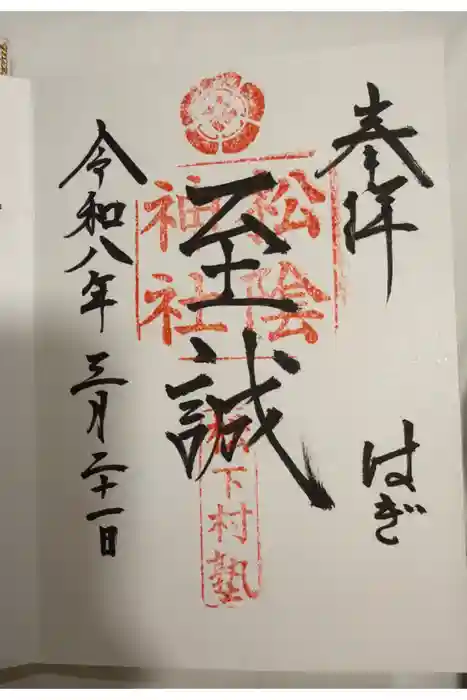 奉拝
はぎ
松陰
神社
至誠
松下村塾
令和八年 三月二十一日